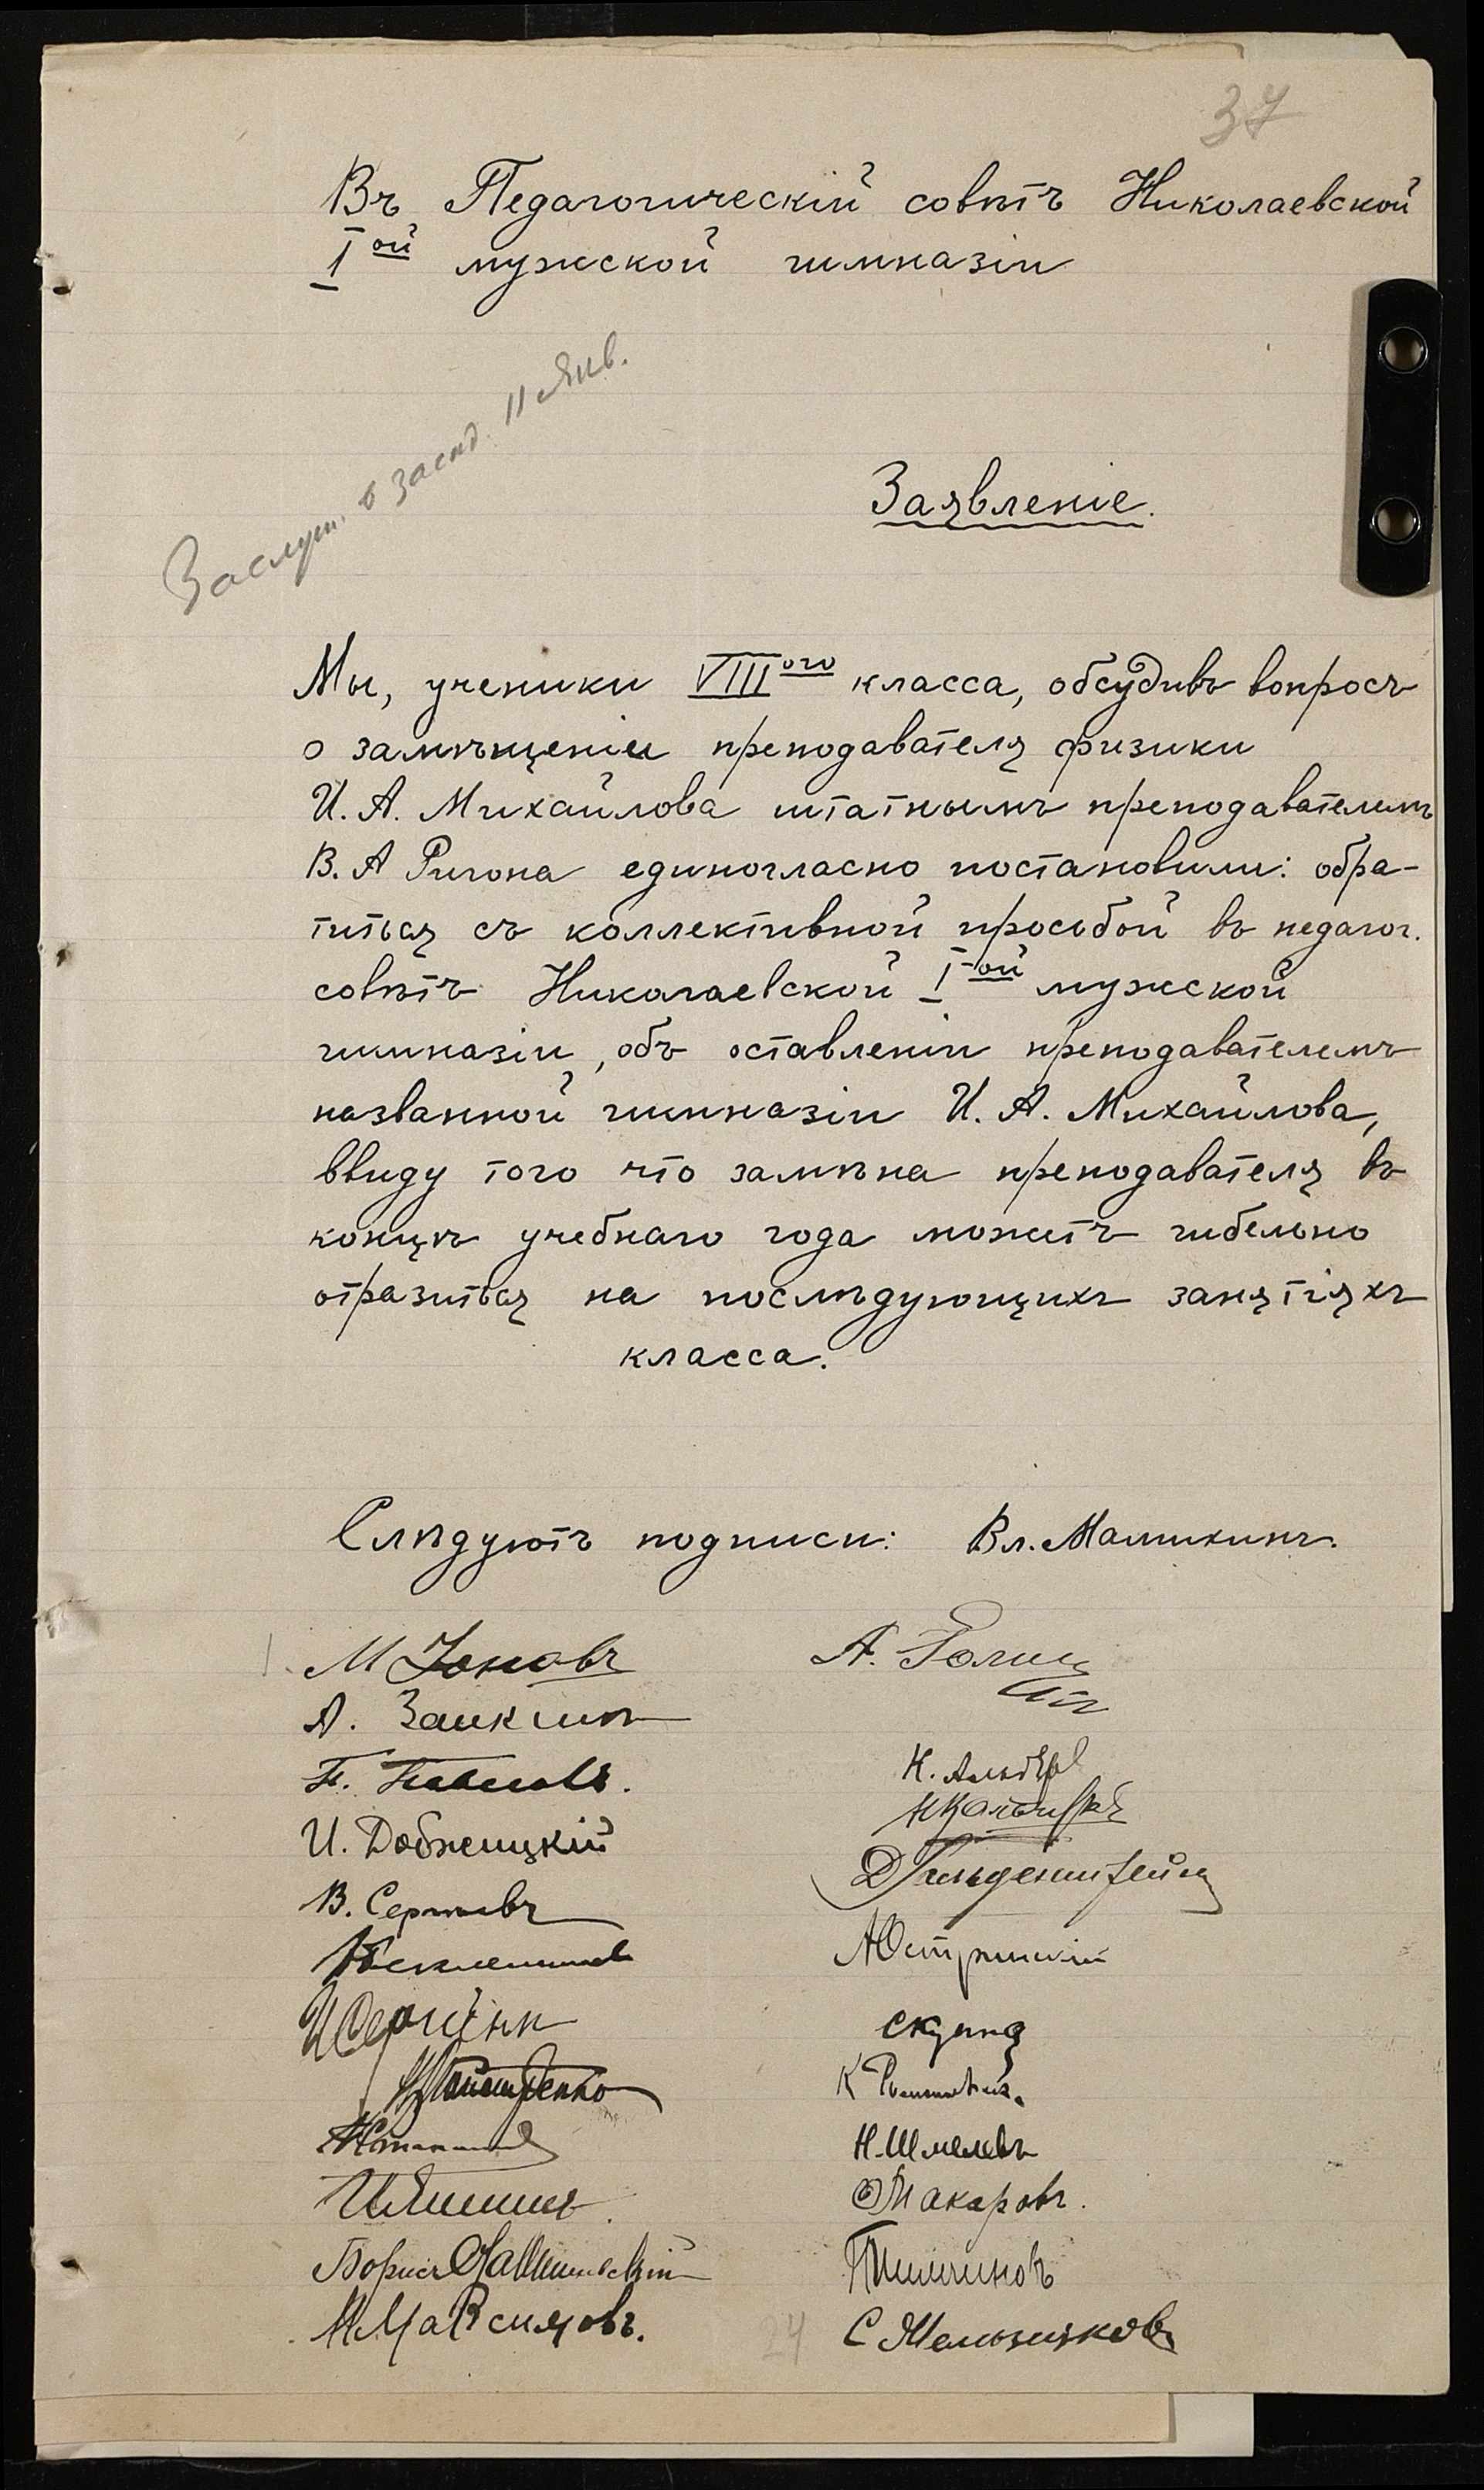 37
Въ Педагогическій совѣтъ Николаевской
I ой мужской гимназіи
Заслуш. в засѣд. 11 Янв.
Заявленіе.
Мы, ученики VIII ого класса, обсудивъ вопросъ
о замѣщеніи преподавателя физики
И. А. Михайлова штатнымъ преподавателемъ
В. А Ригона единогласно постановили: обра-
титься съ коллективной просьбой въ педагог.
совѣтъ Николаевской I-ой мужской
гимназіи, объ оставленіи преподавателемъ
названной гимназіи И. А. Михайлова,
ввиду того что замѣна преподавателя въ
концѣ учебнаго года можетъ гибельно
отразиться на послѣдующихъ занятіяхъ
класса.
Слѣдуютъ подписи: Вл. Малихинъ.
М Іоновъ
А. Заикинъ
И. Добженицкій
В. Сергѣевъ
Борисъ
М Максимовъ.
А.
Н.
Д Гольденштейнъ
А Юстринскій
К
Н. Шмелевъ
Макаровъ.
24
С Мельзиковъ